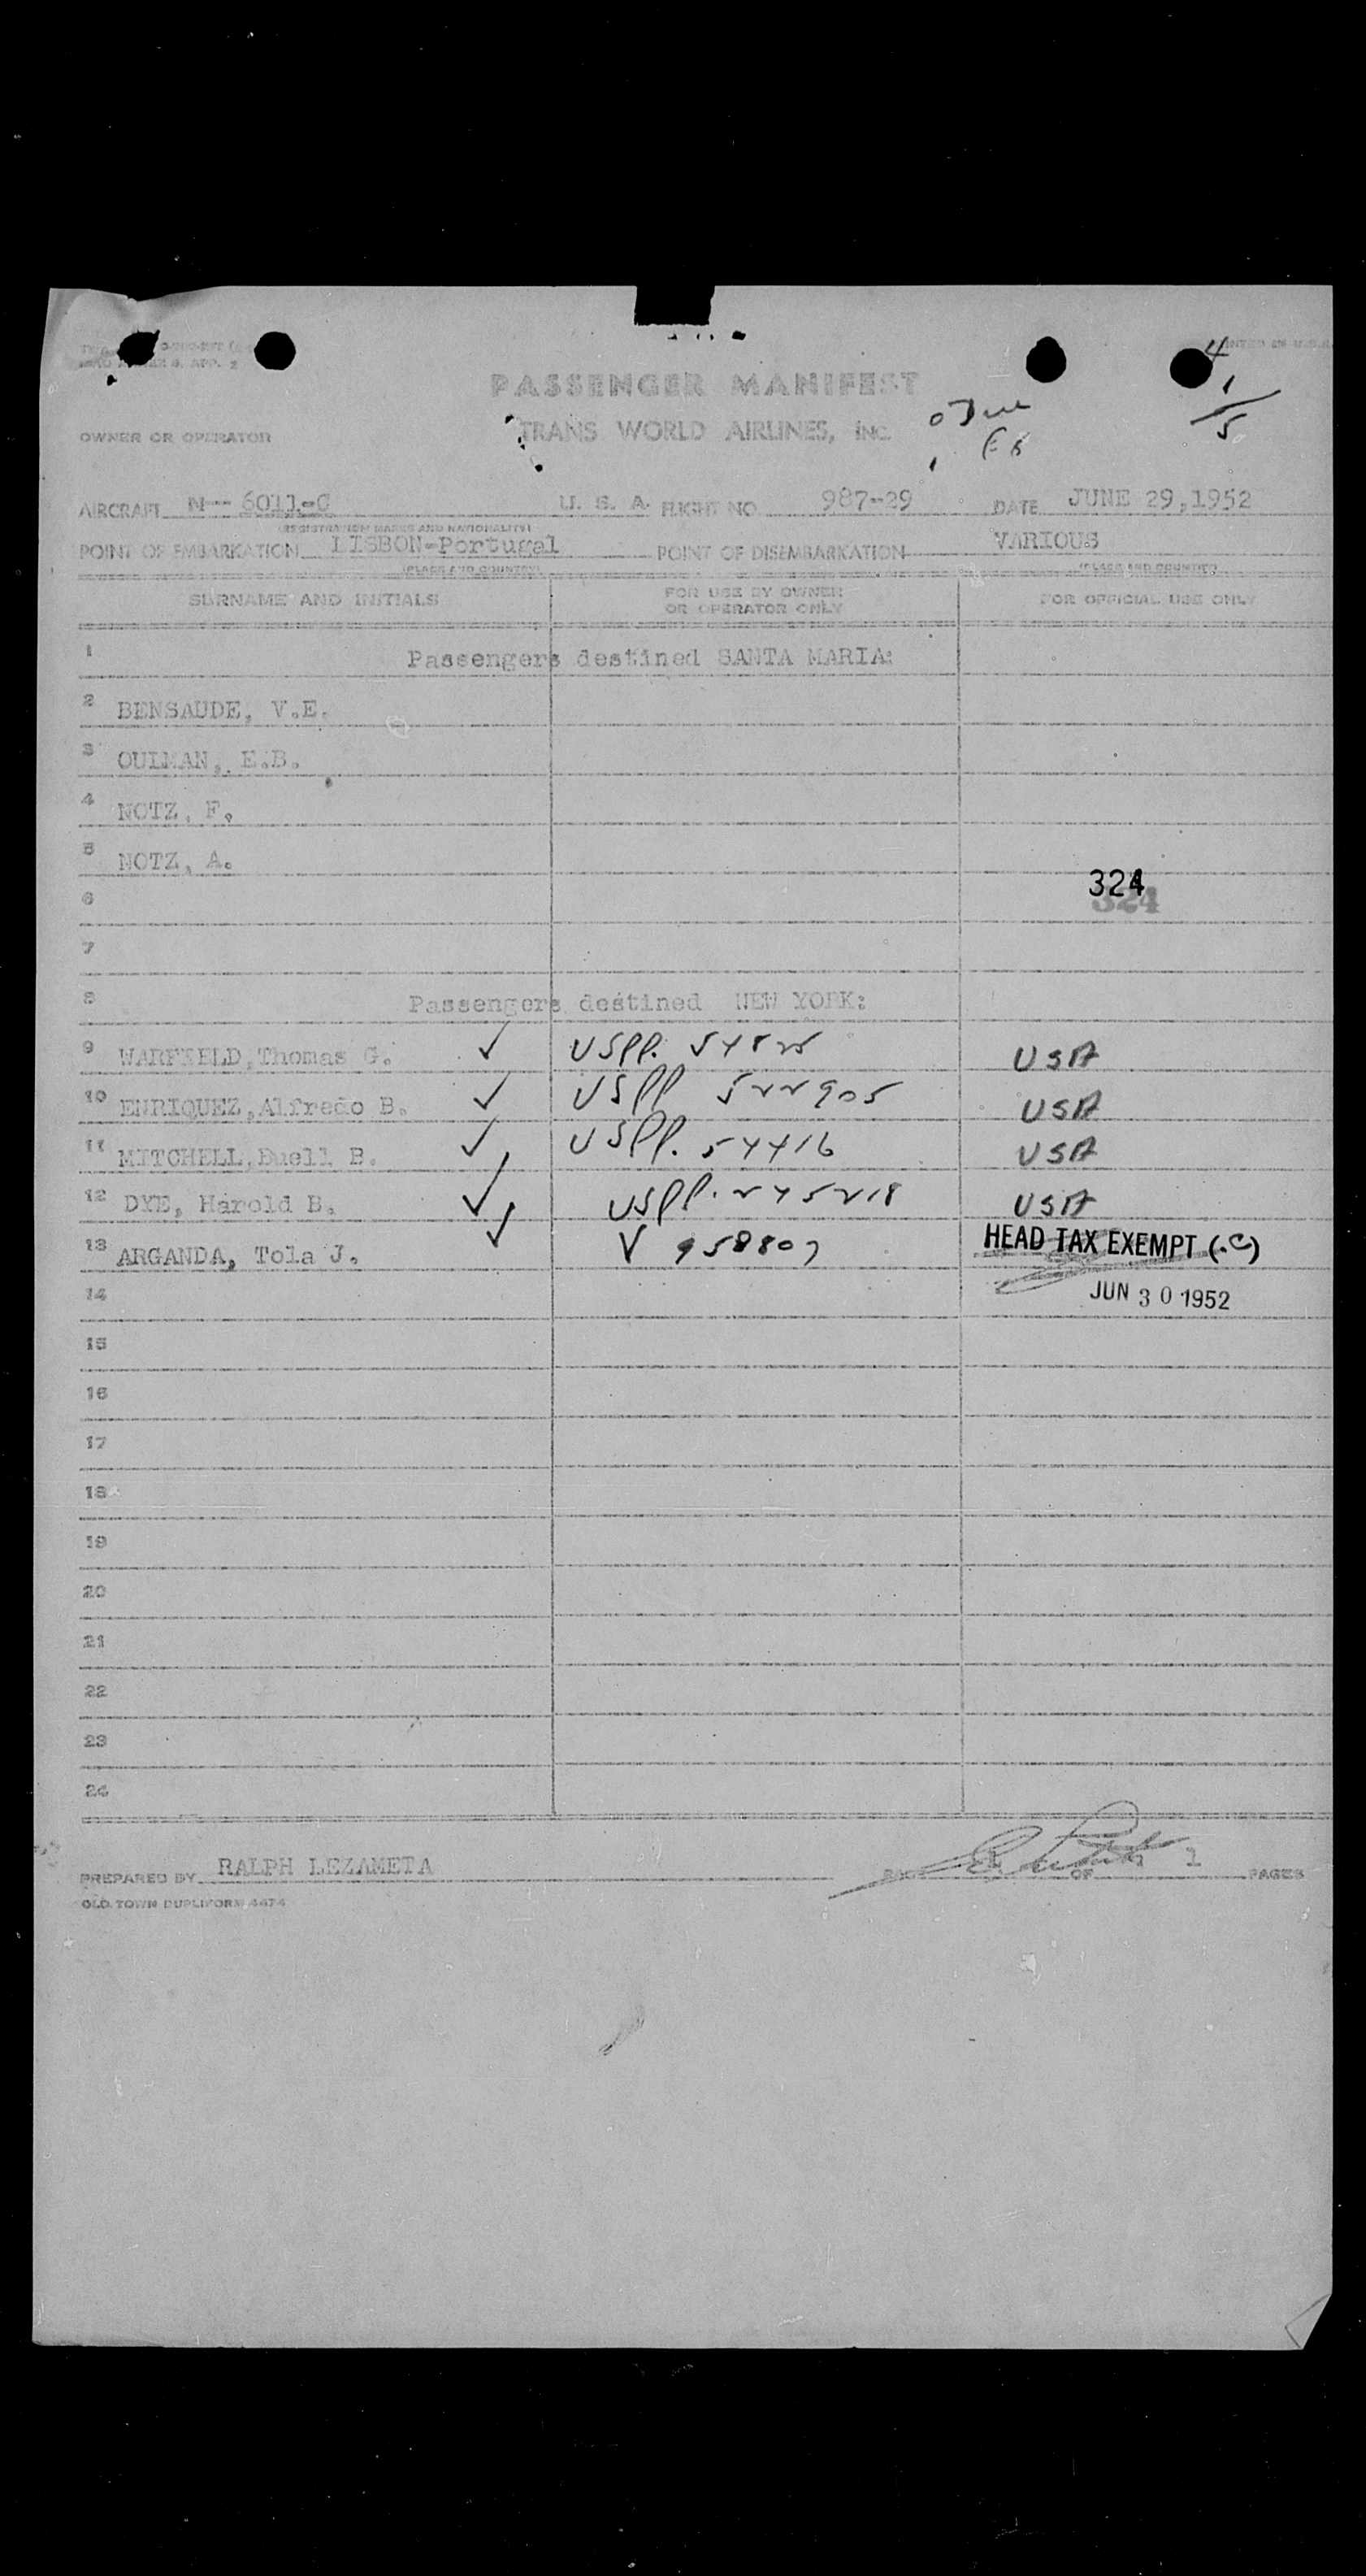 PRINTED IN U.S.A.
4
1
5
PASSENGER MANIFEST
OWNER OR OPERATOR TRANS WORLD AIRLINES, INC.
AIRCRAFT N--6011-C U. S. A. FLIGHT NO. 987-29 DATE JUNE 29,1952
(REGISTRATION MARKS AND NATIONALITY)
POINT OF EMBARKATION LISBON-Portugal POINT OF DISEMBARKATION VARIOUS
(PLACE AND COUNTRY) (PLACE AND COUNTRY)
SURNAME AND INITIALS FOR USE BY OWNER OR OPERATOR ONLY FOR OFFICIAL USE ONLY
1 Passengers destined SANTA MARIA:
2 BENSAUDE, V.E.
3 OULMAN, E.B.
4 NOTZ, F.
5 NOTZ, A.
6 324
324
7
8 Passengers destined NEW YORK:
9 WARFIELD,Thomas G. ✓ USPP. 54825 USA
10 ENRIQUEZ,Alfredo B. ✓ USPP 522905 USA
11 MITCHELL,Duell B. ✓ USPP. 54416 USA
12 DYE, Harold B. ✓ USPP. 245218 USA
13 ARGANDA, Tola J. ✓ V 958807 HEAD TAX EXEMPT (.C)
14 JUN 30 1952
15
16
17
18
19
20
21
22
23
24
PREPARED BY RALPH LEZAMETA OF 1 PAGES
OLD TOWN DUPLIFORM 4474